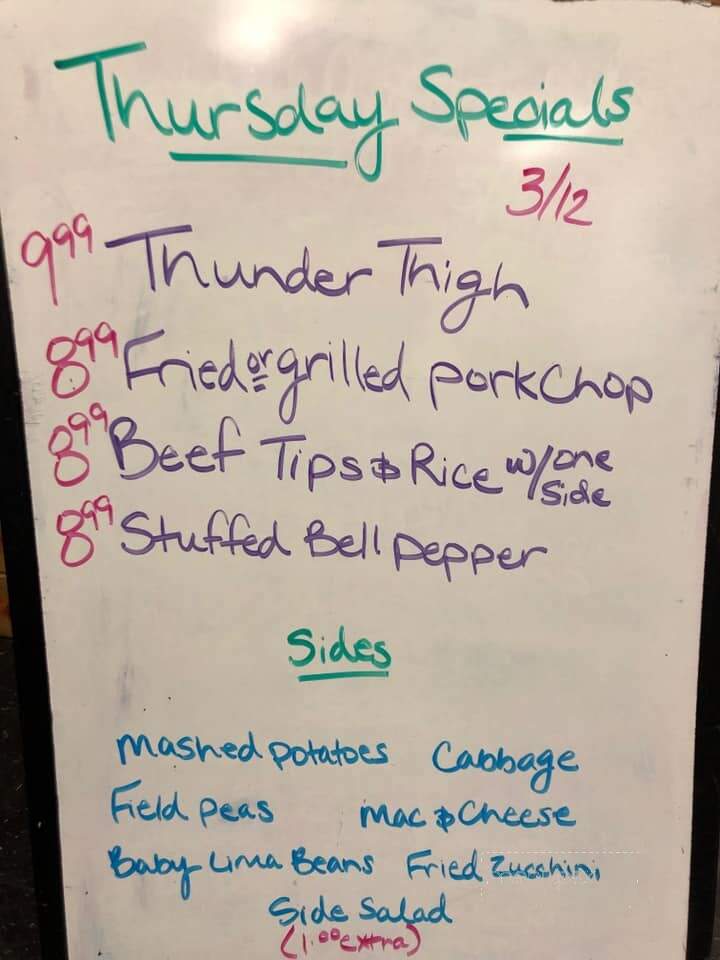 Thursday Specials
3/12
9.99 Thunder Thigh
8.99 Fried or grilled porkchop
8.99 Beef Tips & Rice w/one side
8.99 Stuffed Bell pepper
Sides
mashed potatoes Cabbage
Field peas mac & Cheese
Baby Lima Beans Fried Zucchini
Side Salad
(1.00 extra)